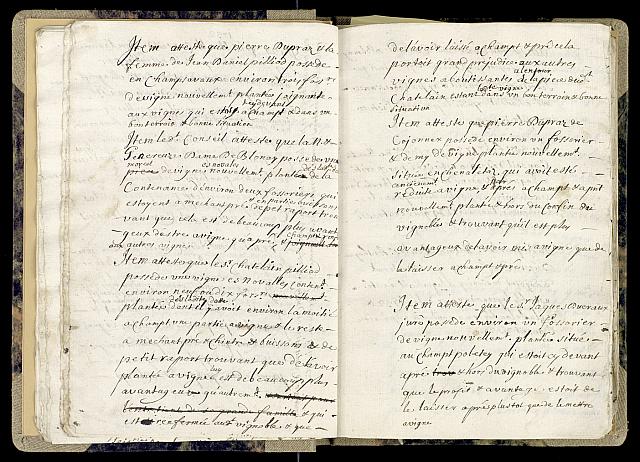 Item atteste que pierre Dupraz et la
femme de Jean Daniel pilliod possede
en Champsavaux environ trois fossr
de vigne nouvellement plantée joignante
cydevant
aux vignes qui estoit a champt & dans un
bon terroir & bonne situation
Item led.t Conseil atteste que la N. &
Genereuse Dame De Blonay possede un
morcel es novalles
de vigne nouvellement plantée de la
Contenance d'environ deux fossoriers qui
en partie buissons
estoyent a mechant pre de petit raport trou
vant que cela est de beaucoup plus avant
geux d'estre a vigne qu'a pré &
aux autres vignes
Item atteste que le Sr Chatelain pilliod
possede une vigne es novalles Conten.t
environ neuf ou dix fossrs
plantée dont il y avoit environ la moitié
a champt une partie a vigne & le reste
a mechant pre Chintre & buissons & de
petit raport trouvant que de l'avoir
planté a vigne est de beaucoup plus
luy
avantageux qu'autrement
famille & qui
est renfermée au vignoble & que
de l'avoir laissé a champt & pré cela
portoit grand prejudice aux autres
a l'entour
vignes aboutissantes de la piece dud.t
lad.te vigne
Chatelain estant dans un bon terrain & bonne
situation
Item atteste que pierre Dupraz de
Cojonnex possede environ un fossorier
& demy de vigne plantée nouvellemt.
située en Chenalettaz qui avoit esté
anciennement
reduite a vigne & aprés a champt & a pnt
nouvellemt plantée & hors du Confin du
vignoble & trouvant qu'il est plus
avantageux de l'avoir mis a vigne que de
la laisser a champt & pré
Item atteste que le Sr Jaques Deveraux
juré possede environ un fossorier
de vigne nouvellemt. plantée située
au Champt poletey qui estoit cy devant
a pré & hors du vignoble & trouvant
que le profit & avantage estoit de
le laisser a pré plustot que de le mettre
a vigne